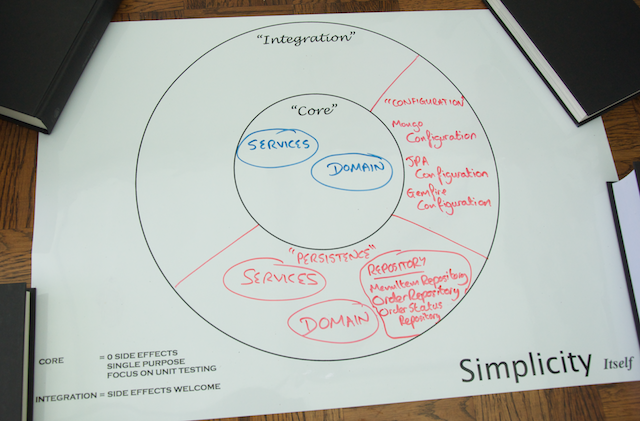 "Integration"
"Core"
SERVICES
DOMAIN
"CONFIGURATION"
Mongo
Configuration
JPA
Configuration
Gemfire
Configuration
"PERSISTENCE"
SERVICES
DOMAIN
REPOSITORY
MenuItemRepository
OrderRepository
Order Status
Repository
CORE = 0 SIDE EFFECTS
SINGLE PURPOSE
FOCUS ON UNIT TESTING
INTEGRATION = SIDE EFFECTS WELCOME
Simplicity Itself